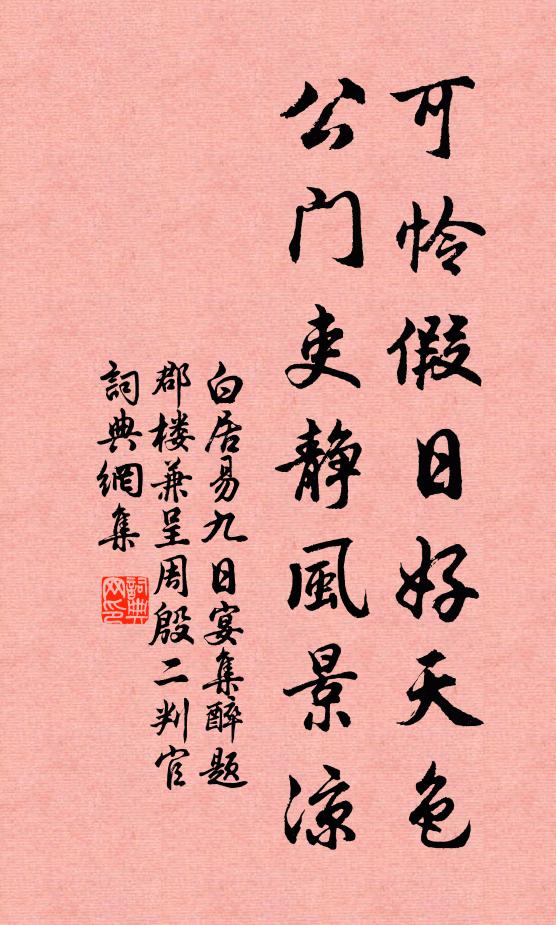 可怜假日好天色
公门吏静風景凉
白居易九日宴集醉题
郡楼兼呈周殷二判官
詞典網集